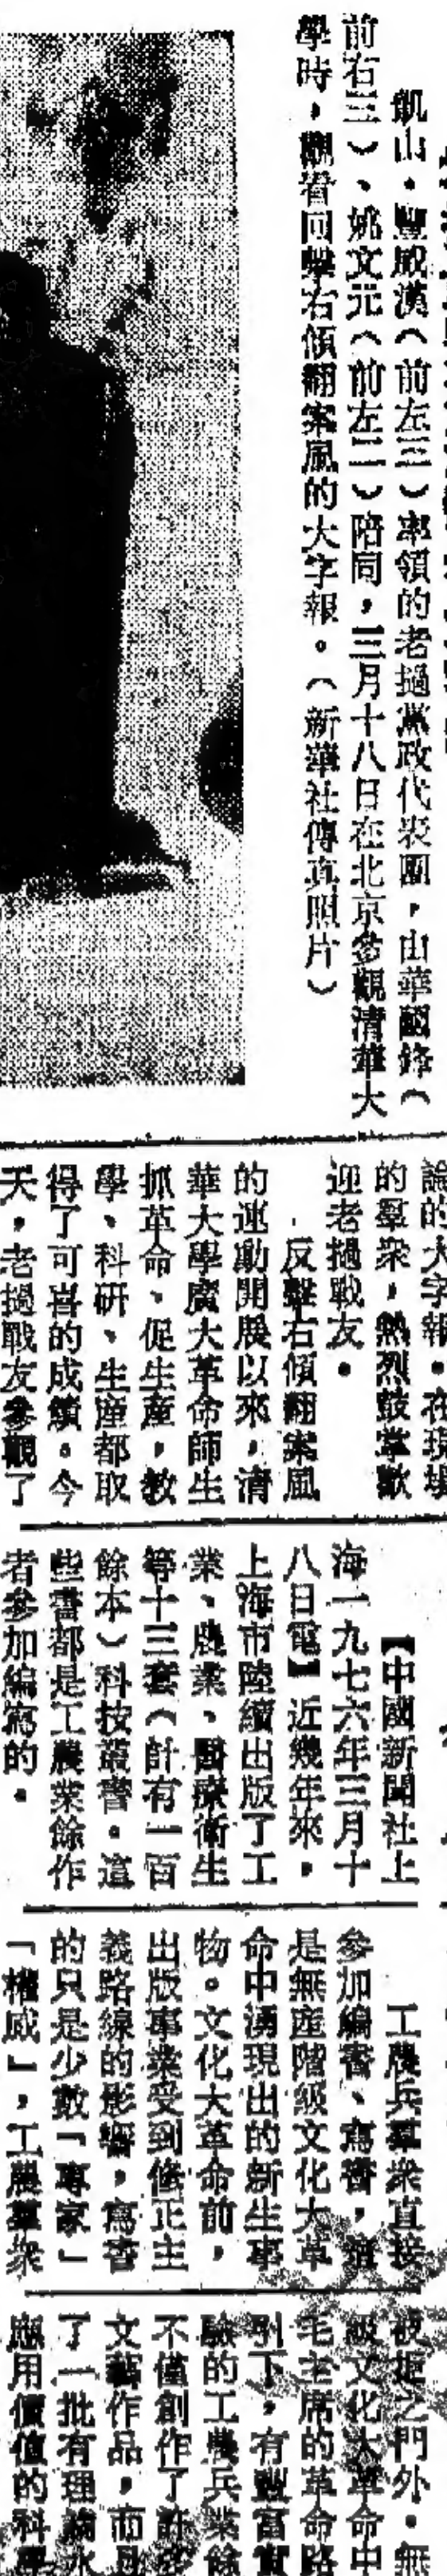 凱山・豐威漢（前左三）率領的老撾黨政代表團，由華國鋒（
前右三）、姚文元（前左二）陪同，三月十八日在北京參觀清華大
學時，觀看回擊右傾翻案風的大字報。（新華社傳真照片）
論的大字報。在現場
的羣衆，熱烈鼓掌歡
迎老撾戰友。
反擊右傾翻案風
的運動開展以來，清
華大學廣大革命師生
抓革命、促生產，教
學、科研、生產都取
得了可喜的成績。今
天，老撾戰友參觀了
【中國新聞社上
海一九七六年三月十
八日電】近幾年來，
上海市陸續出版了工
業、農業、醫療衛生
等十三套（計有一百
餘本）科技叢書。這
些書都是工農業餘作
者參加編寫的。
工農兵羣衆直接
參加編書、寫書，這
是無產階級文化大革
命中湧現出的新生事
物。文化大革命前，
出版事業受到修正主
義路線的影響，寫書
的只是少數「專家」
「權威」，工農羣衆
被拒之門外。無
級文化大革命中
毛主席的革命路
引下，有豐富實
驗的工農兵業餘
不僅創作了許多
文藝作品，而且
了一批有理論水
應用價值的科學